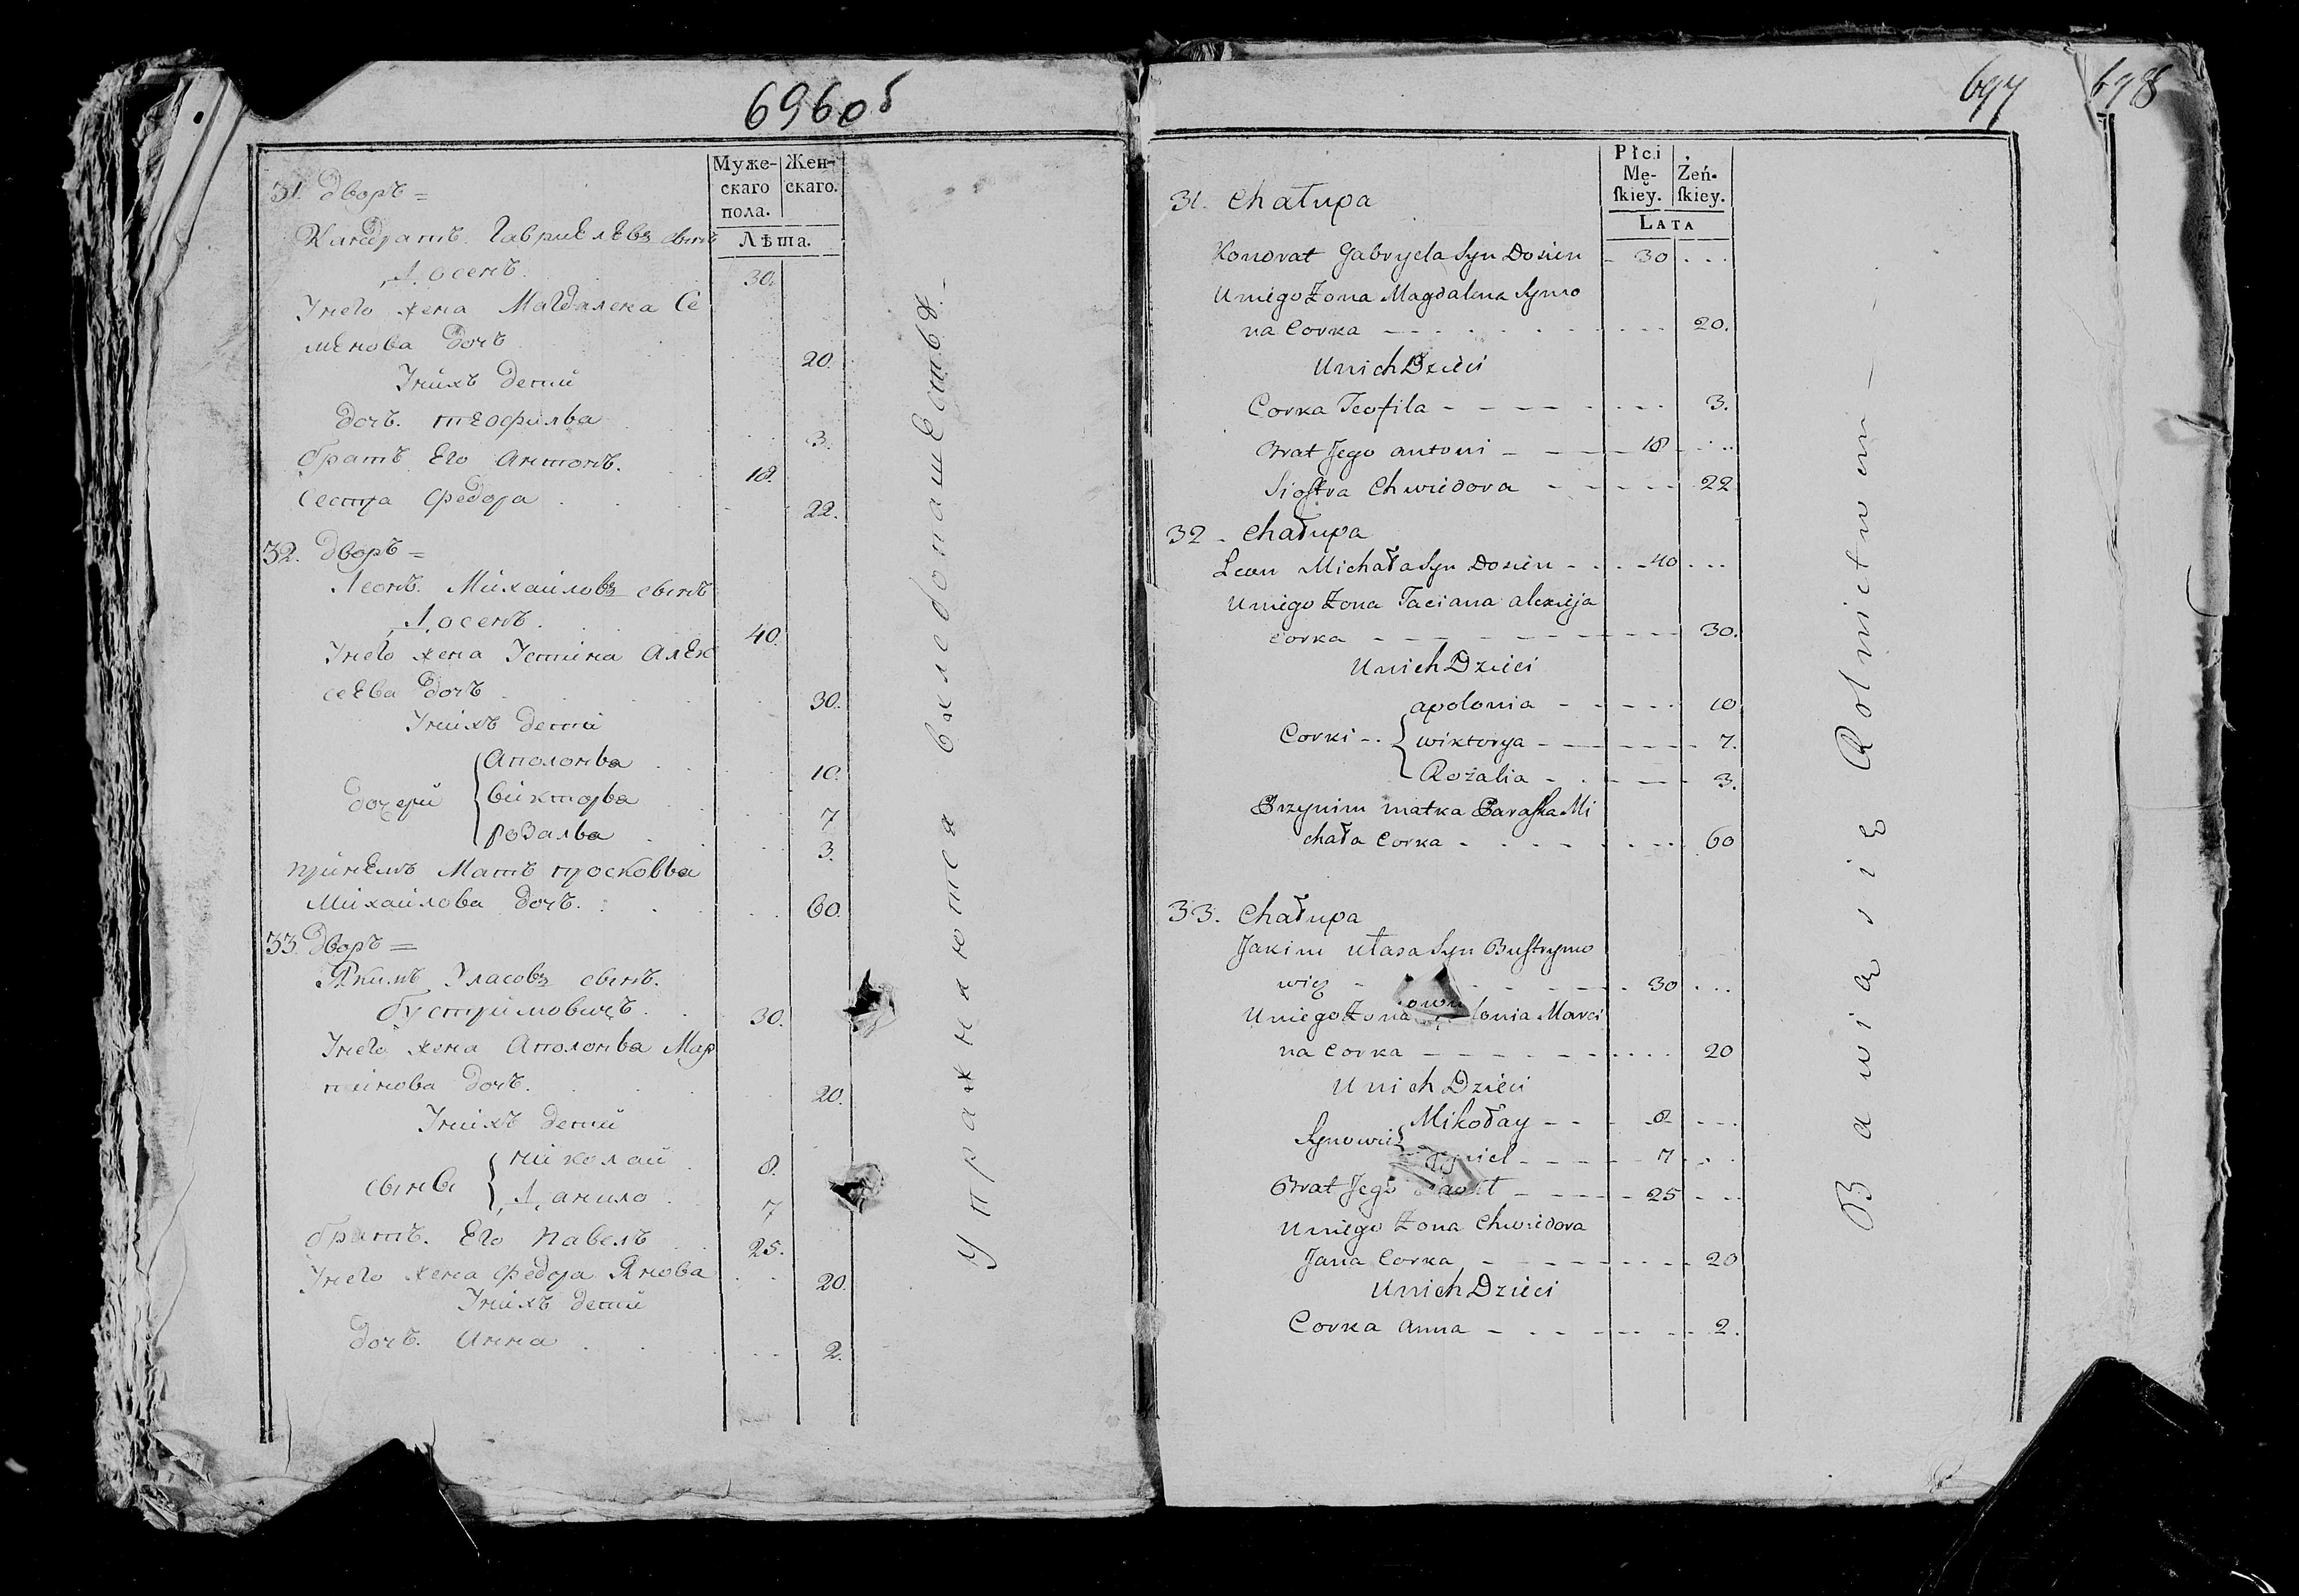 696об
Муже-
скаго
пола.
Жен-
скаго.
Лѣта.
31. Дворъ =
Кандратъ Гавриелевъ сынъ
Досенъ. 30.
Унего жена Магдалена Се
менова дочь 20.
Унихъ детий
дочь. теофилва 3.
братъ Его Антонъ. 18.
Сестра Федора 22.
32. Дворъ =
Леонъ. Михаиловъ сынъ
Досенъ. 40.
Унего жена Устина Алек
сеева дочь 30.
Унихъ детий
дочерй { Аполонва 10.
викторва 7
розалва 3.
принемъ Мать просковва
Михаилова дочь. 60.
33 Дворъ =
Якимъ Уласовъ сынъ.
бустримовичъ. 30.
Унего жена Аполонва Мар
тинова дочь. 20.
Унихъ детий
сынвй { николай 8.
Данило 7
братъ. Его павелъ 25.
Унего жена Федора Янова 20.
Унихъ детий
дочь. Анна 2.
Упражняются вхлебопашестве.
697
698
Płci
Mę-
skiey.
Żeń-
skiey.
LATA
31. Chałupa
Kondrat Gabryela Syn Dosien - 30 ...
Uniego Żona Magdalena Symo
na Corka - - - 20.
Unich Dzieci
Corka Teofila - - - 3.
Brat Jego antoni - - - 18 ...
Siostra Chwiedora - - - 22
32. Chałupa
Leon Michała Syn Dosien - - - 40 ...
Uniego Żona Taciana alexieja
corka - - - 30.
Unich Dzieci
Corki -- { apolonia - - - 10
wiktorya - - - 7.
Rozalia - - - 3.
Przynim matka Paraska Mi
chała Corka - - - 60
33. Chałupa
Jakim ułasa Syn Bustrymo
wicz - - - 30 ...
Uniego Żona lonia Marci
na Corka - - - 20
Unich Dzieci
Synowie { Mikołay - - - 8 ...
niel - - - 7 ...
Brat Jego - - - 25 ...
Uniego Żona Chwiedora
Jana Corka - - - 20
Unich Dzieci
Corka anna - - - 2.
Bawią się Rolnictwem